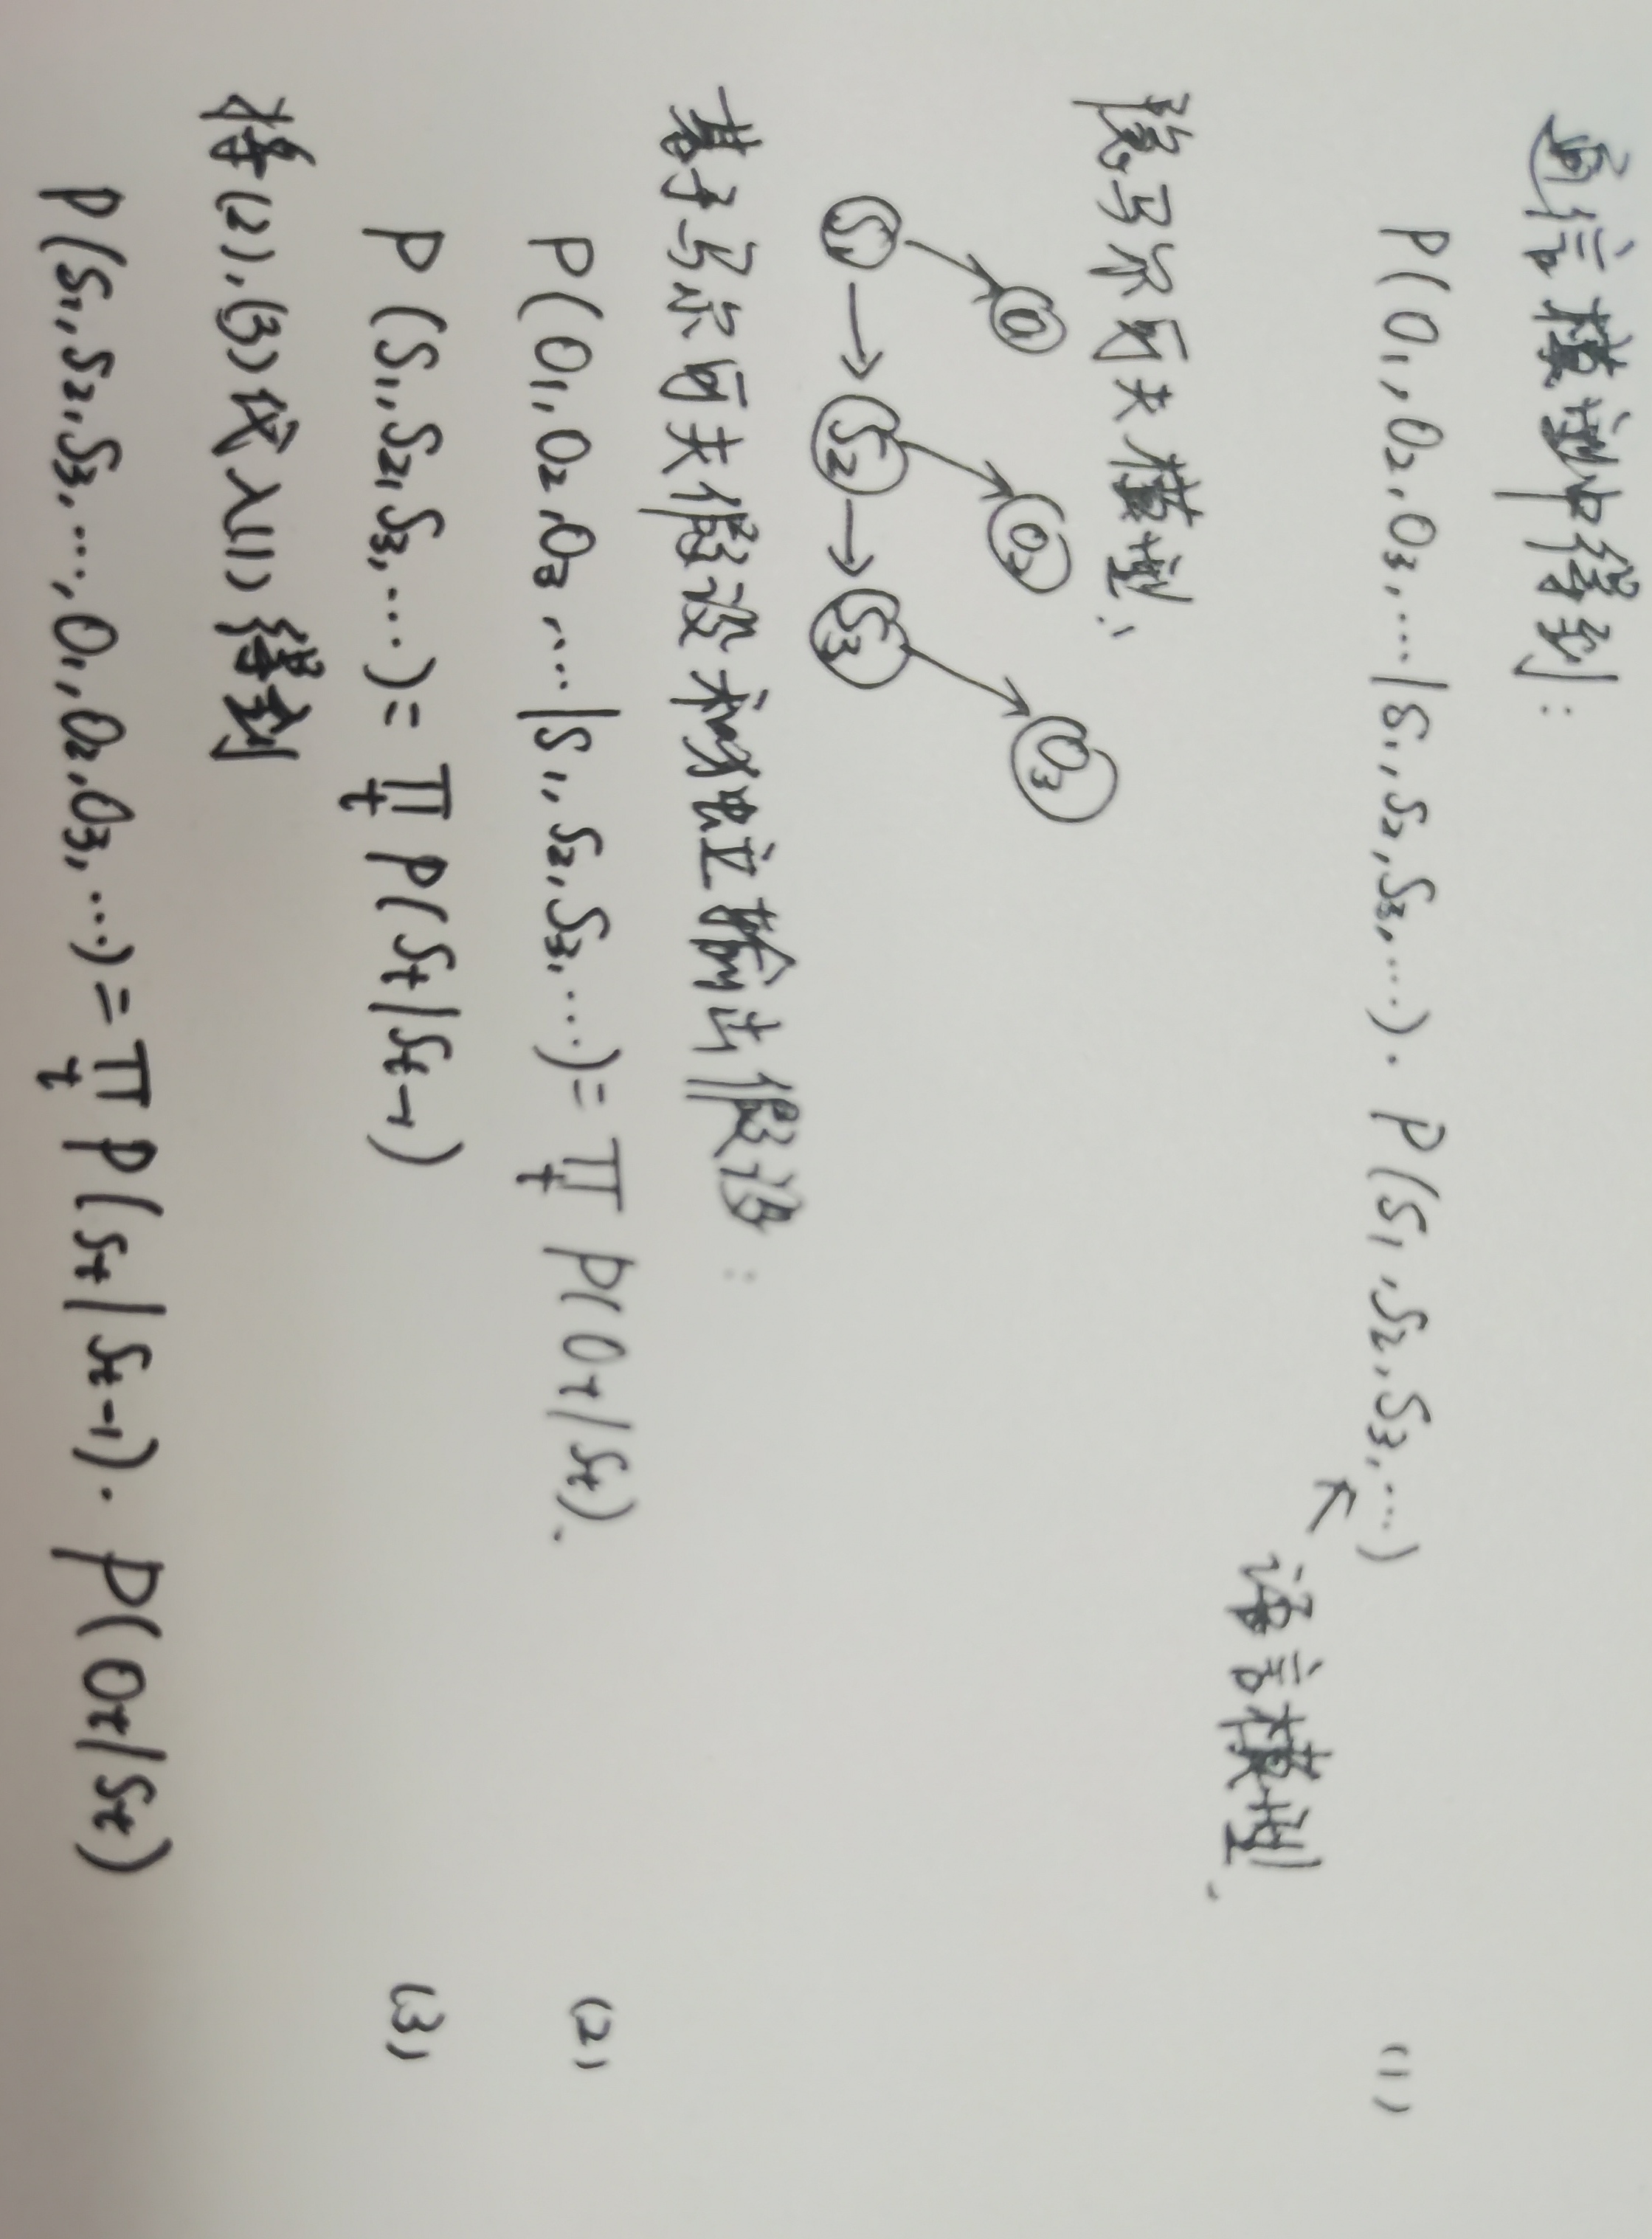 通信模型中得到:
P(O₁,O₂,O₃,…|S₁,S₂,S₃,…)·P(S₁,S₂,S₃,…) (1)
语言模型.
隐马尔可夫模型:
O₁ O₂ O₃
S₁ → S₂ → S₃
基于马尔可夫假设和独立输出假设:
P(O₁,O₂,O₃,…|S₁,S₂,S₃,…)=∏ₜ P(Oₜ|Sₜ). (2)
P(S₁,S₂,S₃,…)=∏ₜ P(Sₜ|Sₜ₋₁) (3)
将(2),(3)代入(1)得到
P(S₁,S₂,S₃,…,O₁,O₂,O₃,…)=∏ₜ P(Sₜ|Sₜ₋₁)·P(Oₜ|Sₜ)